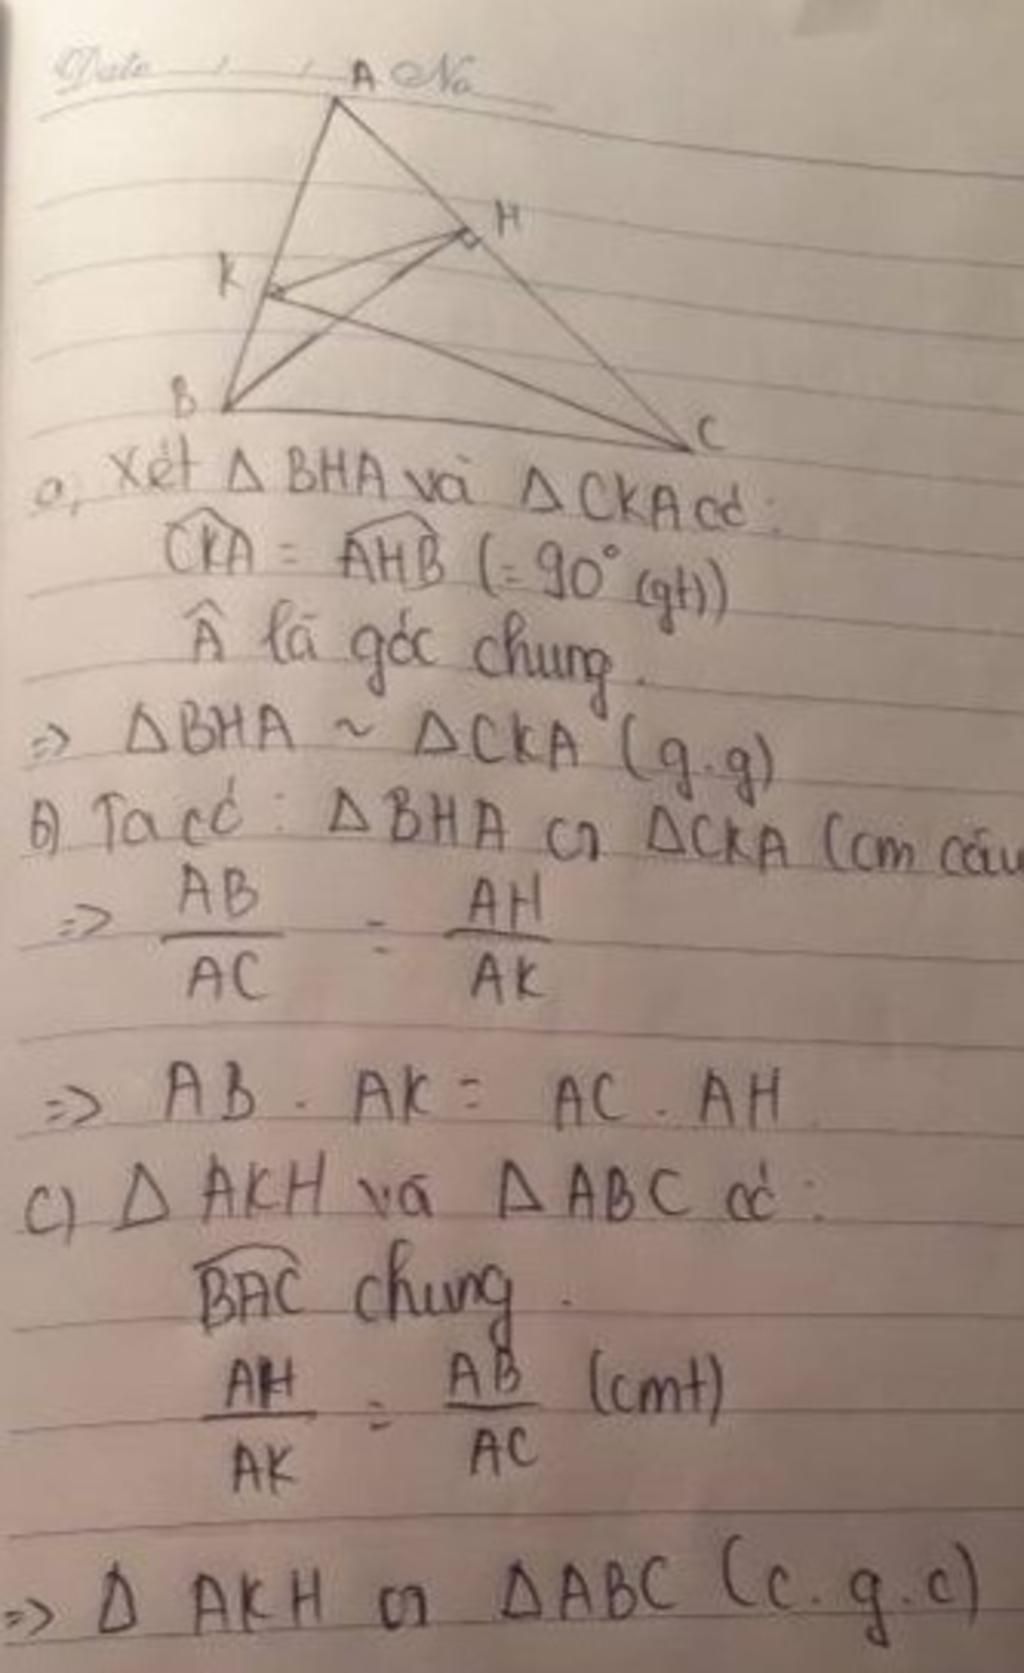 Date / / No
A
H
K
B
C
a, Xét Δ BHA và Δ CKA có:
CKA = AHB (= 90° (gt))
Â là góc chung.
=> ΔBHA ~ ΔCKA (g.g)
b) Ta có: ΔBHA ∽ ΔCKA (cm câu
=> AB/AC = AH/AK
=> AB . AK = AC . AH
c) Δ AKH và Δ ABC có:
BAC chung.
AH/AK = AB/AC (cmt)
=> Δ AKH ∽ ΔABC (c.g.c)